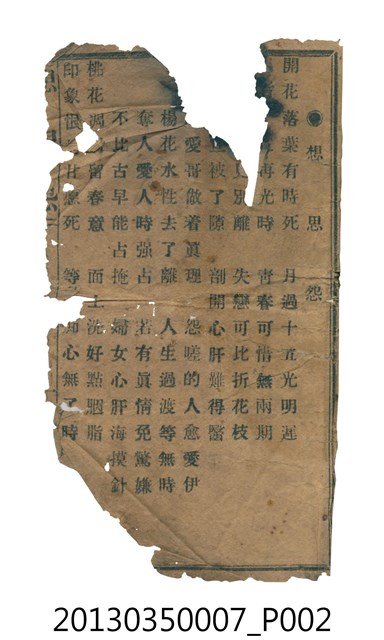 想思怨
開花落葉有時死 月過十五光明遲
再光時 靑春可惜無兩期
別離 失戀可比折花枝
被了隙 剖開心肝雖得醫
愛哥做着眞理 怨嗟的人愈愛伊
楊花水性去了離 人生過渡等無時
奪人愛人時强占 若有眞情免驚嫌
不比古早能占掩 婦女心肝海摸針
桃花 留春意 面 洗好點胭脂
印象 死 等 心無了時
20130350007_P002